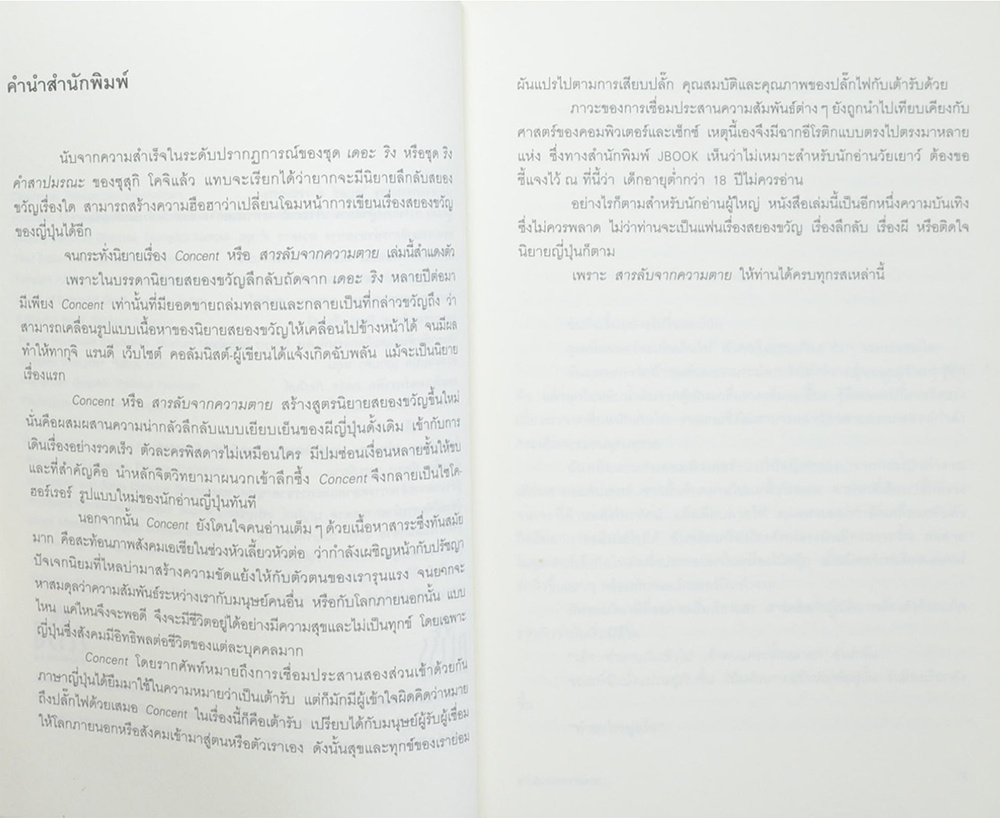 คำนำสำนักพิมพ์
นับจากความสำเร็จในระดับปรากฏการณ์ของชุด เดอะ ริง หรือชุด ริง
คำสาปมรณะ ของซูสุกิ โคจิแล้ว แทบจะเรียกได้ว่ายากจะมีนิยายลึกลับสยอง
ขวัญเรื่องใด สามารถสร้างความฮือฮาว่าเปลี่ยนโฉมหน้าการเขียนเรื่องสยองขวัญ
ของญี่ปุ่นได้อีก
จนกระทั่งนิยายเรื่อง Concent หรือ สารลับจากความตาย เล่มนี้สำแดงตัว
เพราะในบรรดานิยายสยองขวัญลึกลับถัดจาก เดอะ ริง หลายปีต่อมา
มีเพียง Concent เท่านั้นที่มียอดขายถล่มทลายและกลายเป็นที่กล่าวขวัญถึง ว่า
สามารถเคลื่อนรูปแบบเนื้อหาของนิยายสยองขวัญให้เคลื่อนไปข้างหน้าได้ จนมีผล
ทำให้ทากุจิ แรนดี เว็บไซต์ คอลัมนิสต์-ผู้เขียนได้แจ้งเกิดฉับพลัน แม้จะเป็นนิยาย
เรื่องแรก
Concent หรือ สารลับจากความตาย สร้างสูตรนิยายสยองขวัญขึ้นใหม่
นั่นคือผสมผสานความน่ากลัวลึกลับแบบเยียบเย็นของผีญี่ปุ่นดั้งเดิม เข้ากับการ
เดินเรื่องอย่างรวดเร็ว ตัวละครพิสดารไม่เหมือนใคร มีปมซ่อนเงื่อนหลายชั้นให้ขบ
และที่สำคัญคือ นำหลักจิตวิทยามาผนวกเข้าลึกซึ้ง Concent จึงกลายเป็นไซโค-
ฮอร์เรอร์ รูปแบบใหม่ของนักอ่านญี่ปุ่นทันที
นอกจากนั้น Concent ยังโดนใจคนอ่านเต็มๆ ด้วยเนื้อหาสาระซึ่งทันสมัย
มาก คือสะท้อนภาพสังคมเอเชียในช่วงหัวเลี้ยวหัวต่อ ว่ากำลังเผชิญหน้ากับปรัชญา
ปัจเจกนิยมที่ไหลบ่ามาสร้างความขัดแย้งให้กับตัวตนของเรารุนแรง จนยากจะ
หาสมดุลว่าความสัมพันธ์ระหว่างเรากับมนุษย์คนอื่น หรือกับโลกภายนอกนั้น แบบ
ไหน แค่ไหนจึงจะพอดี จึงจะมีชีวิตอยู่ได้อย่างมีความสุขและไม่เป็นทุกข์ โดยเฉพาะ
ญี่ปุ่นซึ่งสังคมมีอิทธิพลต่อชีวิตของแต่ละบุคคลมาก
Concent โดยรากศัพท์หมายถึงการเชื่อมประสานสองส่วนเข้าด้วยกัน
ภาษาญี่ปุ่นได้ยืมมาใช้ในความหมายว่าเป็นเต้ารับ แต่ก็มักมีผู้เข้าใจผิดคิดว่าหมาย
ถึงปลั๊กไฟด้วยเสมอ Concent ในเรื่องนี้ก็คือเต้ารับ เปรียบได้กับมนุษย์ผู้รับผู้เชื่อม
ให้โลกภายนอกหรือสังคมเข้ามาสู่ตนหรือตัวเราเอง ดังนั้นสุขและทุกข์ของเราย่อม
ผันแปรไปตามการเสียบปลั๊ก คุณสมบัติและคุณภาพของปลั๊กไฟกับเต้ารับด้วย
ภาวะของการเชื่อมประสานความสัมพันธ์ต่างๆ ยังถูกนำไปเทียบเคียงกับ
ศาสตร์ของคอมพิวเตอร์และเซ็กซ์ เหตุนี้เองจึงมีฉากอีโรติกแบบตรงไปตรงมาหลาย
แห่ง ซึ่งทางสำนักพิมพ์ JBOOK เห็นว่าไม่เหมาะสำหรับนักอ่านวัยเยาว์ ต้องขอ
ชี้แจงไว้ ณ ที่นี้ว่า เด็กอายุต่ำกว่า 18 ปีไม่ควรอ่าน
อย่างไรก็ตามสำหรับนักอ่านผู้ใหญ่ หนังสือเล่มนี้เป็นอีกหนึ่งความบันเทิง
ซึ่งไม่ควรพลาด ไม่ว่าท่านจะเป็นแฟนเรื่องสยองขวัญ เรื่องลึกลับ เรื่องผี หรือติดใจ
นิยายญี่ปุ่นก็ตาม
เพราะ สารลับจากความตาย ให้ท่านได้ครบทุกรสเหล่านี้